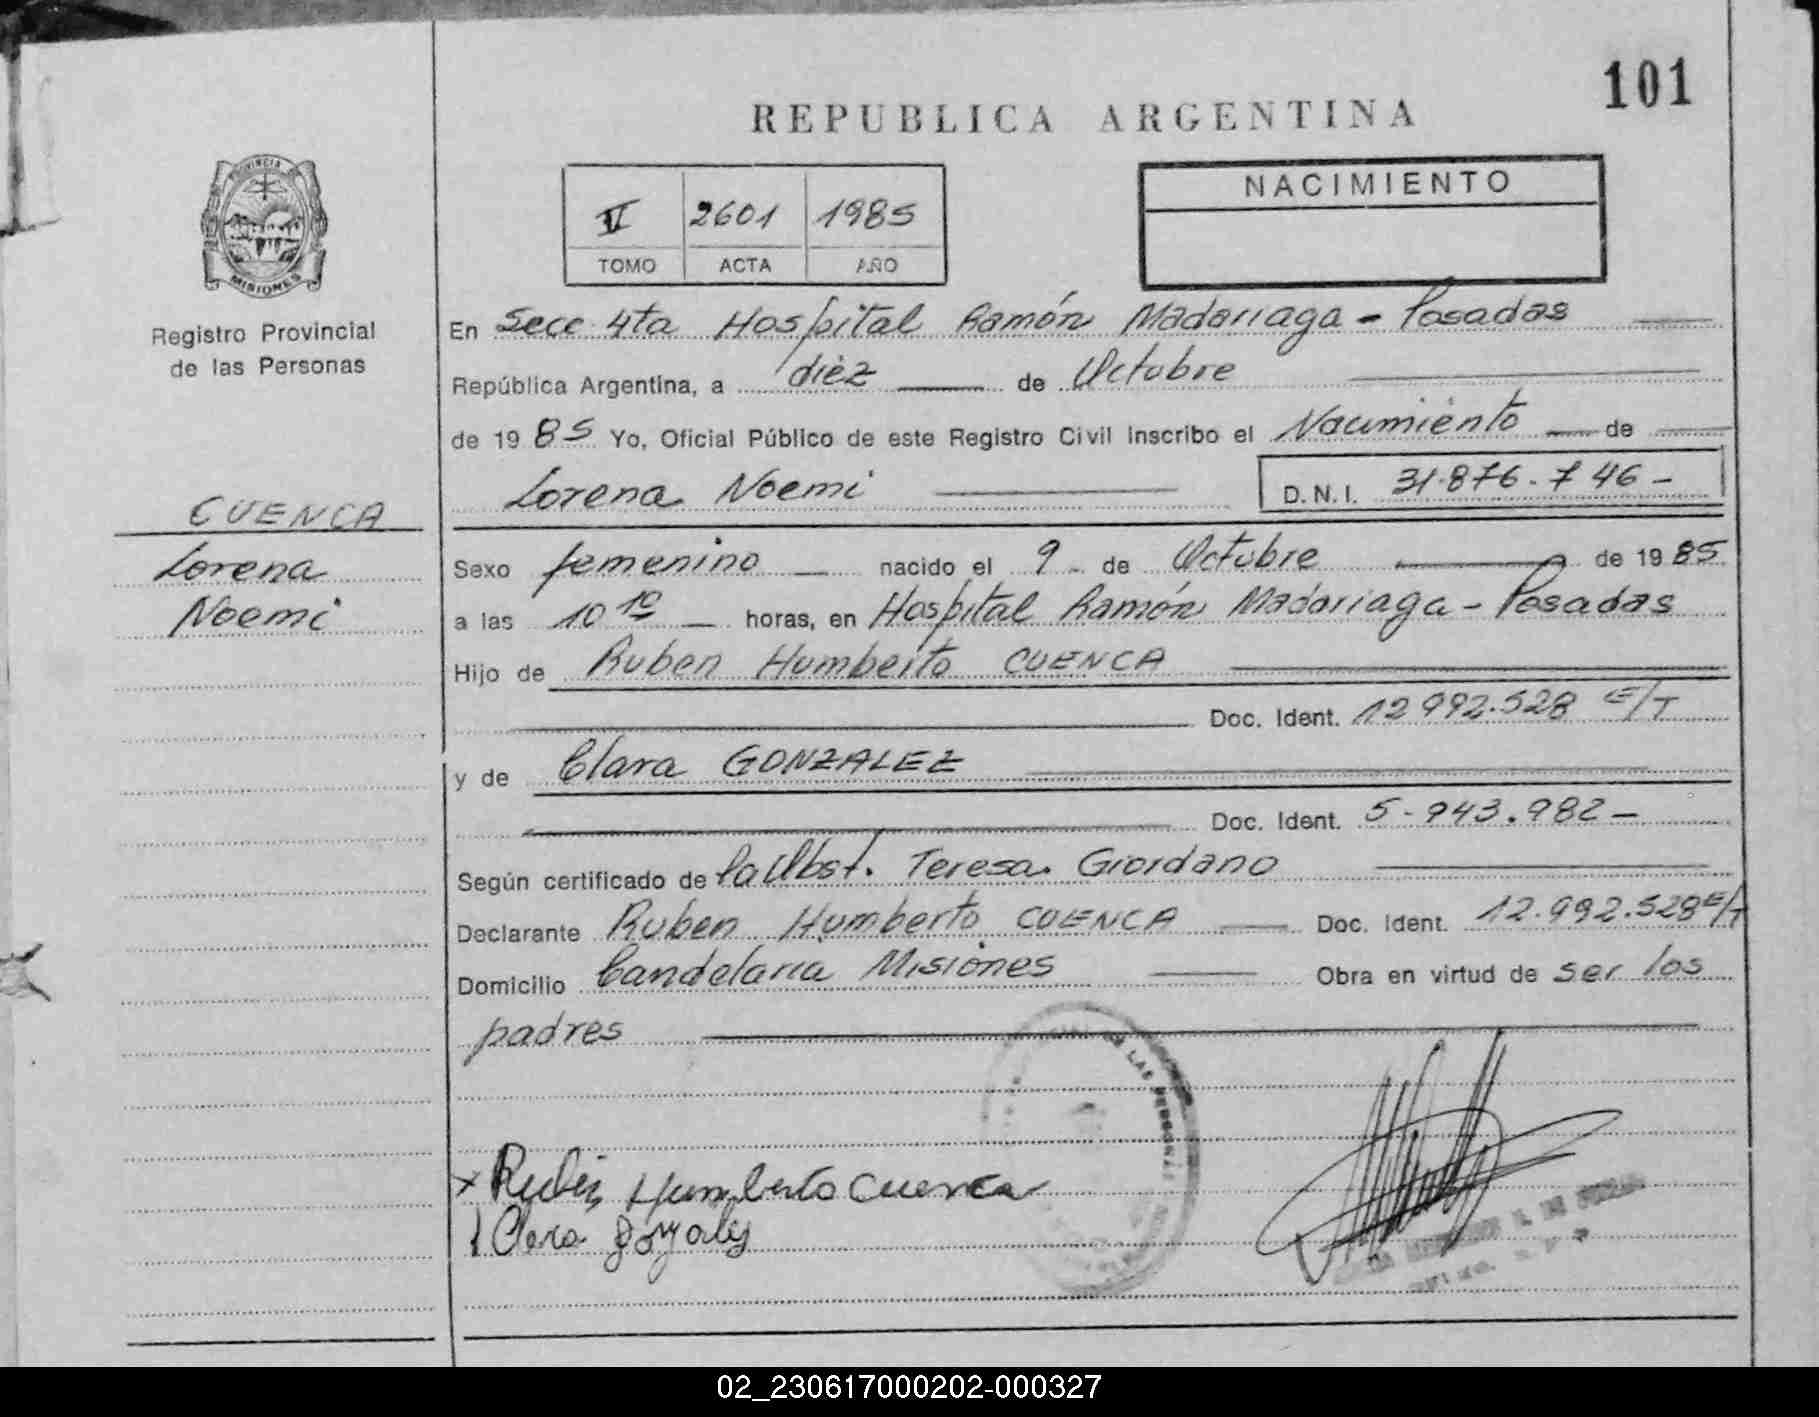 101
REPUBLICA ARGENTINA
PROVINCIA DE
MISIONES
Registro Provincial
de las Personas
V 2601 1985
TOMO ACTA AÑO
NACIMIENTO
En Secc 4ta Hospital Ramón Madariaga - Posadas
República Argentina, a diez de Octubre
de 1985 Yo, Oficial Público de este Registro Civil inscribo el Nacimiento de
Lorena Noemi D.N.I. 31.876.746-
CUENCA
Lorena
Noemi
Sexo femenino nacido el 9 de Octubre de 1985
a las 10 10 horas, en Hospital Ramón Madariaga - Posadas
Hijo de Ruben Humberto CUENCA
Doc. Ident. 12.992.528 E/T
y de Clara GONZALEZ
Doc. Ident. 5.943.982-
Según certificado de la Obst. Teresa Giordano
Declarante Ruben Humberto CUENCA Doc. Ident. 12.992.528 E/T
Domicilio Candelaria Misiones Obra en virtud de ser los
padres
DE LAS PERSONAS
x Rubén Humberto Cuenca
Clara Gonzalez
02_230617000202-000327